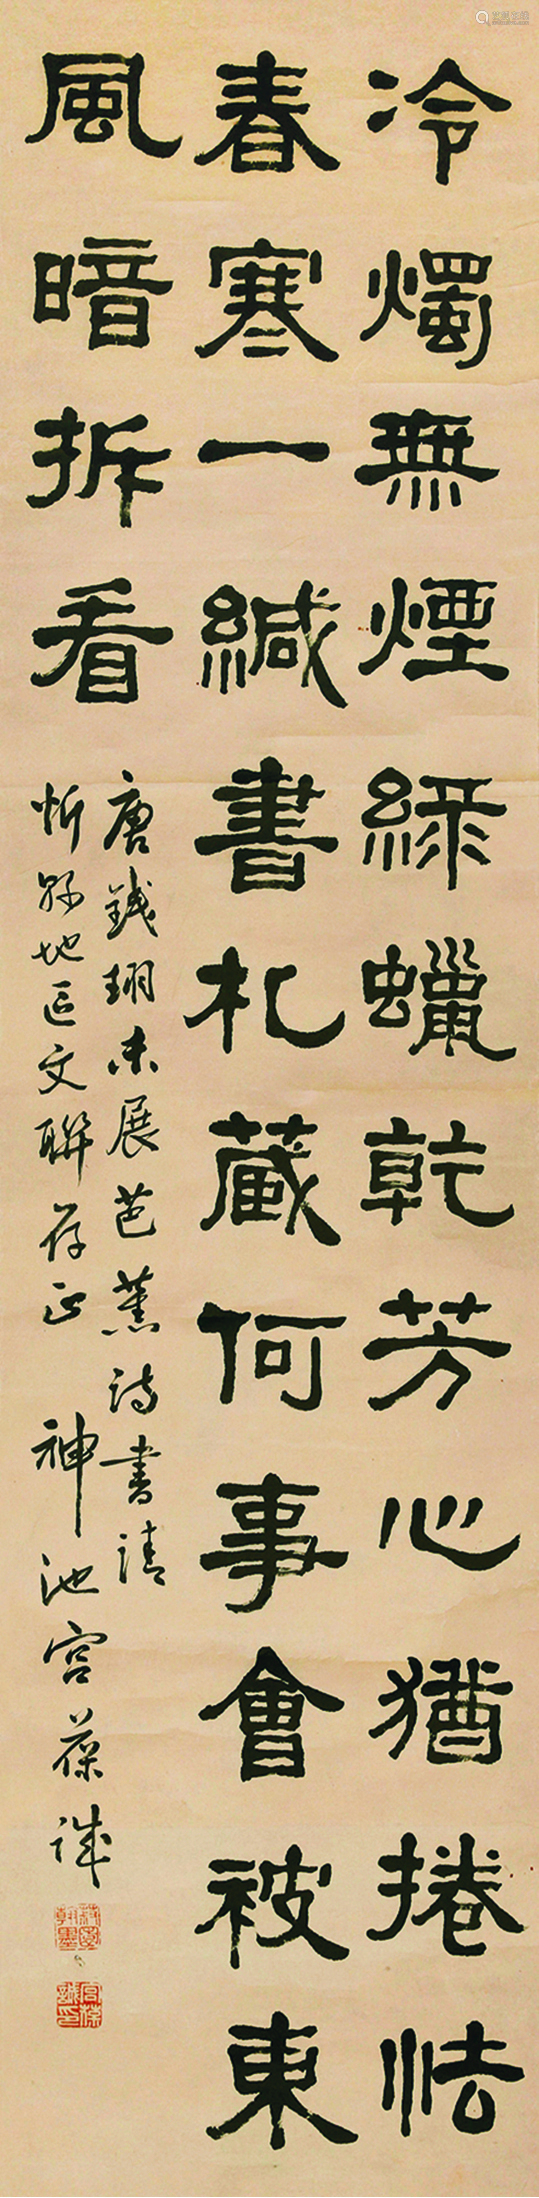 冷燭無煙綠蠟乾芳心猶捲怯
春寒一緘書札藏何事會被東
風暗拆看
唐錢珝未展芭蕉詩書請
忻縣地區文聯存正 神池宮葆誠
宮葆誠印